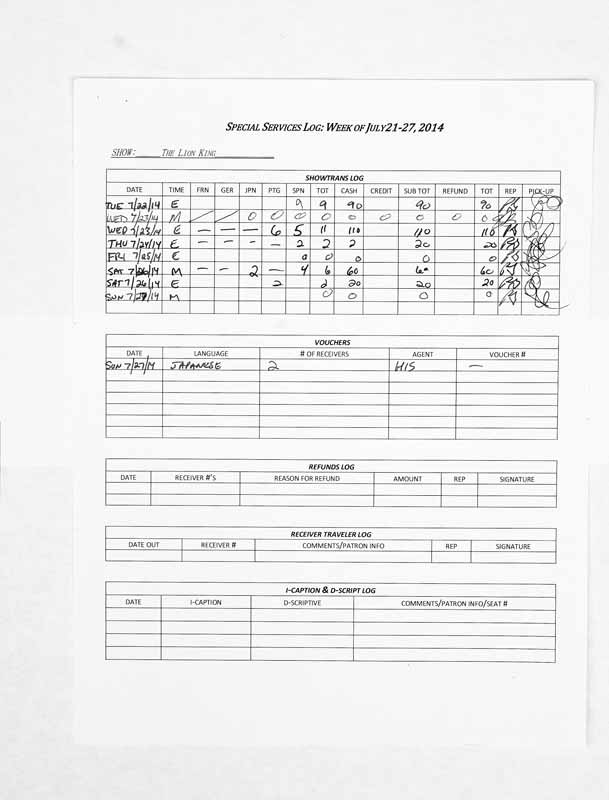 SPECIAL SERVICES LOG: WEEK OF JULY 21-27, 2014
SHOW: THE LION KING
SHOWTRANS LOG
DATE TIME FRN GER JPN PTG SPN TOT CASH CREDIT SUB TOT REFUND TOT REP PICK-UP
TUE 7/22/14 E 9 9 90 90 90
WED 7/23/14 M 0 0 0 0 0 0 0 0 0
WED 7/23/14 E — — — 6 5 11 110 110 110
THU 7/24/14 E - - - — 2 2 2 20 20
FRI 7/25/14 E 0 0 0 0 0
SAT 7/26/14 M - - 2 — 4 6 60 60 60
SAT 7/26/14 E 2 2 20 20 20
SUN 7/27/14 M 0 0 0 0
VOUCHERS
DATE LANGUAGE # OF RECEIVERS AGENT VOUCHER #
SUN 7/27/14 JAPANESE 2 HIS —
REFUNDS LOG
DATE RECEIVER #'S REASON FOR REFUND AMOUNT REP SIGNATURE
RECEIVER TRAVELER LOG
DATE OUT RECEIVER # COMMENTS/PATRON INFO REP SIGNATURE
I-CAPTION & D-SCRIPT LOG
DATE I-CAPTION D-SCRIPTIVE COMMENTS/PATRON INFO/SEAT #